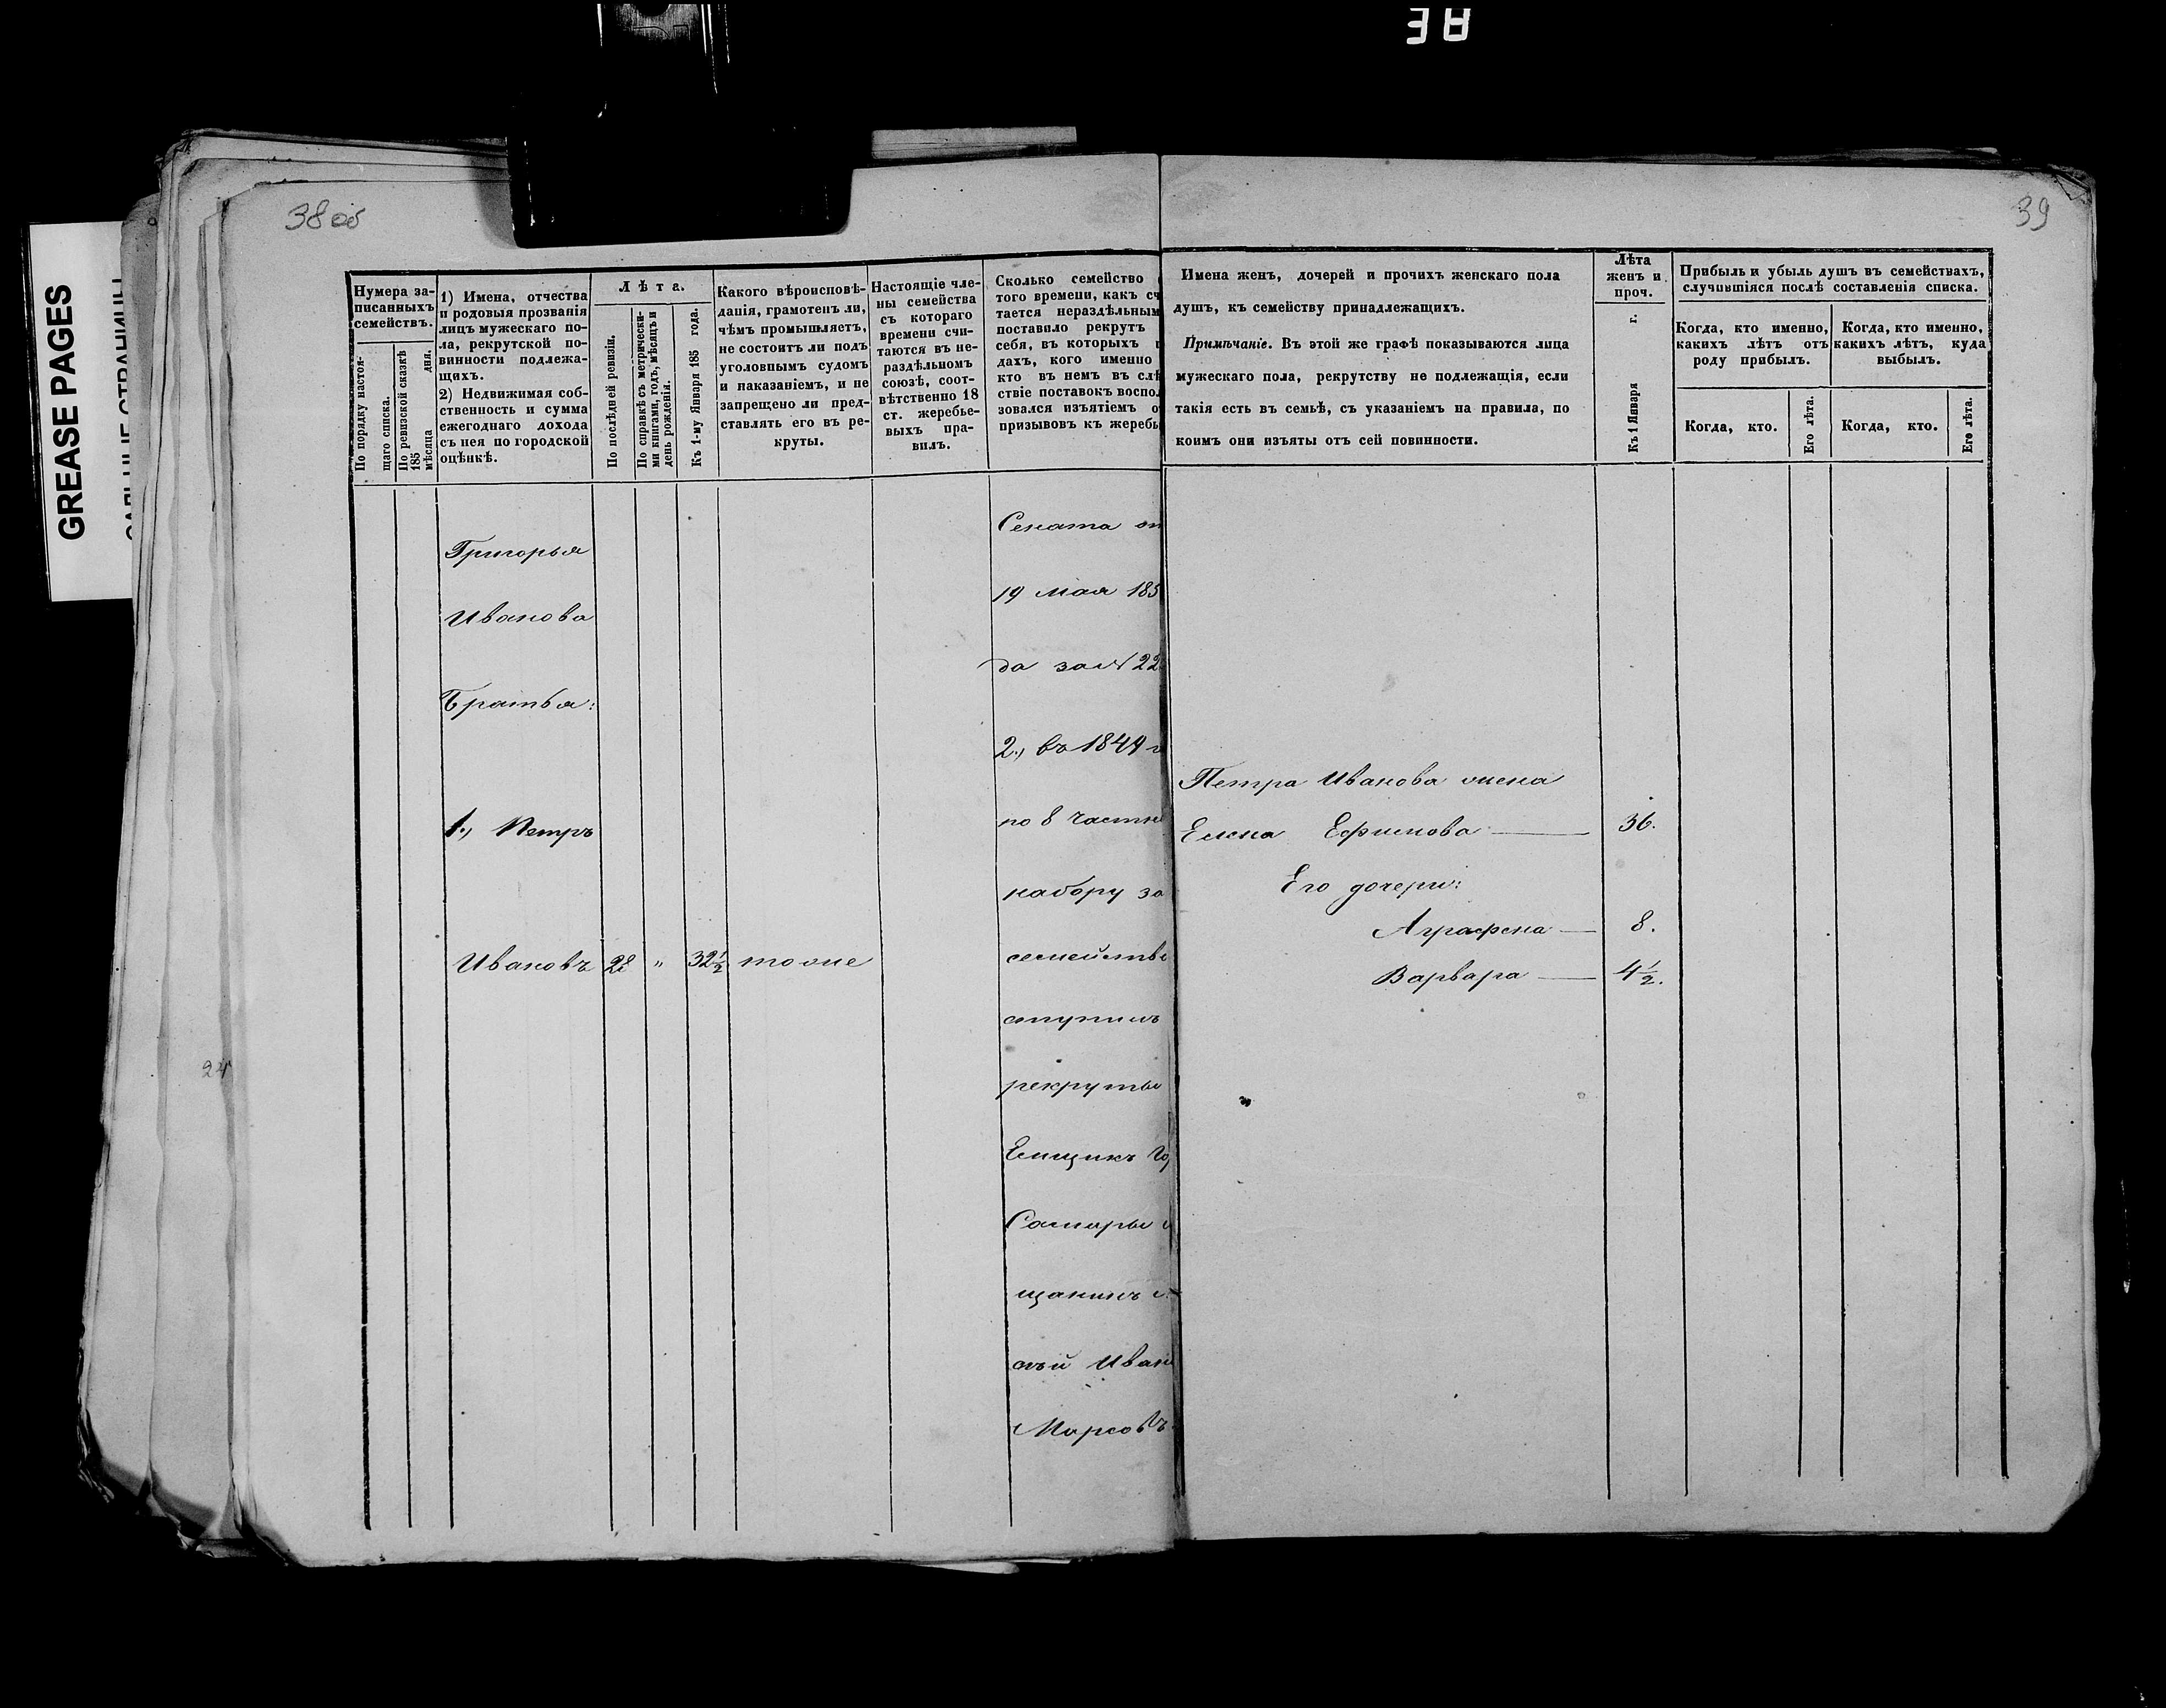 38
GREASE PAGES
38 об
39
Нумера за-
писанныхъ
семействъ.
По порядку настоя-
щаго списка.
По ревизской сказкѣ
185 мѣсяца дня.
1) Имена, отчества
и родовыя прозванія
лицъ мужескаго по-
ла, рекрутской по-
винности подлежа-
щихъ.
2) Недвижимая соб-
ственность и сумма
ежегоднаго дохода
съ нея по городской
оцѣнкѣ.
Лѣта.
По послѣдней ревизіи.
По справкѣ съ метрически-
ми книгами, годъ, мѣсяцъ и
день рожденія.
Къ 1-му Января 185 года.
Какого вѣроисповѣ-
данія, грамотенъ ли,
чѣмъ промышляетъ,
не состоитъ ли подъ
уголовнымъ судомъ
и наказаніемъ, и не
запрещено ли пред-
ставлять его въ ре-
круты.
Настоящіе чле-
ны семейства
съ котораго
времени счи-
таются въ не-
раздѣльномъ
союзѣ, соот-
вѣтственно 18
ст. жеребье-
выхъ пра-
вилъ.
Сколько семейство
того времени, какъ сч
тается нераздѣльным
поставило рекрутъ
себя, въ которыхъ
дахъ, кого именно
кто въ немъ въ слѣ
ствіе поставокъ воспол
зовался изъятіемъ о
призывовъ къ жеребь
Григорья
Иванова
Братья:
1., Петръ
Ивановъ 28 " 32½ тоже
Сената от
19 мая 185
да за № 22
2., въ 1844 г
по 8 частн
набору за
семейств
ступилъ
рекруты
Самары
щанинъ
сѣй Иван
Марсовъ
Имена женъ, дочерей и прочихъ женскаго пола
душъ, къ семейству принадлежащихъ.
Примѣчаніе. Въ этой же графѣ показываются лица
мужескаго пола, рекрутству не подлежащія, если
такія есть въ семьѣ, съ указаніемъ на правила, по
коимъ они изъяты отъ сей повинности.
Лѣта
женъ и
проч.
Къ 1 Января г.
Прибыль и убыль душъ въ семействахъ,
случившіяся послѣ составленія списка.
Когда, кто именно,
какихъ лѣтъ отъ
роду прибылъ.
Когда, кто именно,
какихъ лѣтъ, куда
выбылъ.
Когда, кто.
Его лѣта.
Когда, кто.
Его лѣта.
Петра Иванова жена
Елена Ефимова 36.
Его дочери:
Аграфена 8.
Варвара 4½.
24